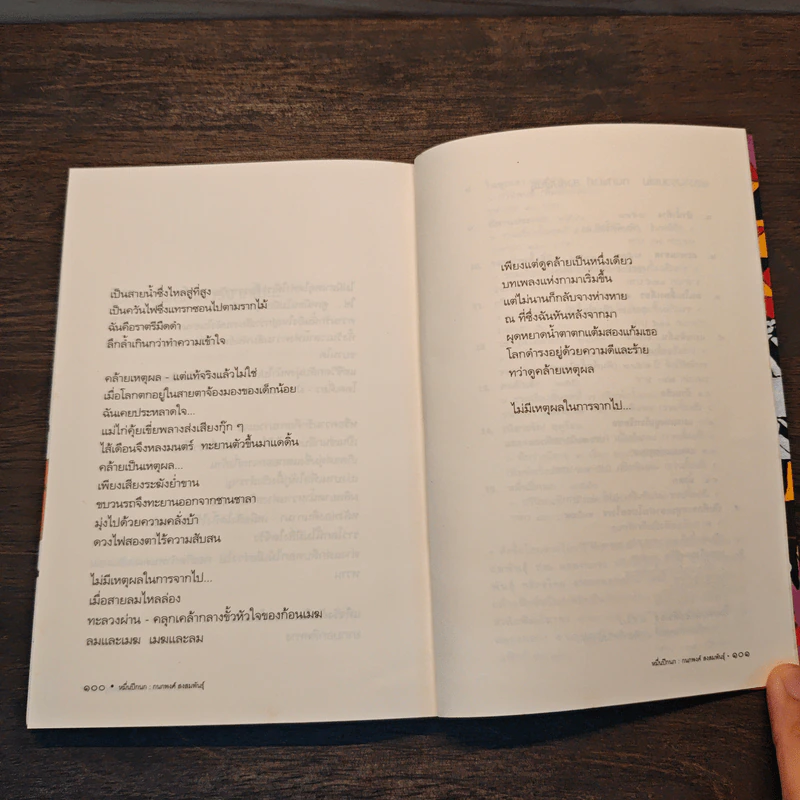 เป็นสายน้ำซึ่งไหลสู่ที่สูง
เป็นควันไฟซึ่งแทรกซอนไปตามรากไม้
ฉันคือราตรีมืดดำ
ลึกล้ำเกินกว่าทำความเข้าใจ
คล้ายเหตุผล - แต่แท้จริงแล้วไม่ใช่
เมื่อโลกตกอยู่ในสายตาจ้องมองของเด็กน้อย
ฉันเคยประหลาดใจ...
แม่ไก่คุ้ยเขี่ยพลางส่งเสียงกุ๊ก ๆ
ไส้เดือนจึงหลงมนตร์ ทะยานตัวขึ้นมาแดดิ้น
คล้ายเป็นเหตุผล...
เพียงเสียงระฆังย่ำขาน
ขบวนรถจึงทะยานออกจากชานชาลา
มุ่งไปด้วยความคลั่งบ้า
ดวงไฟสองตาไร้ความสับสน
ไม่มีเหตุผลในการจากไป...
เมื่อสายลมไหลล่อง
ทะลวงผ่าน - คลุกเคล้ากลางขั้วหัวใจของก้อนเมฆ
ลมและเมฆ เมฆและลม
๑๐๐ • หมื่นปีกนก : กนกพงศ์ สงสมพันธุ์
เพียงแต่ดูคล้ายเป็นหนึ่งเดียว
บทเพลงแห่งกามาเริ่มขึ้น
แต่ไม่นานก็กลับจางห่างหาย
ณ ที่ซึ่งฉันหันหลังจากมา
ผุดหยาดน้ำตาตกแต้มสองแก้มเธอ
โลกดำรงอยู่ด้วยความดีและร้าย
ทว่าดูคล้ายเหตุผล
ไม่มีเหตุผลในการจากไป...
หมื่นปีกนก : กนกพงศ์ สงสมพันธุ์ • ๑๐๑